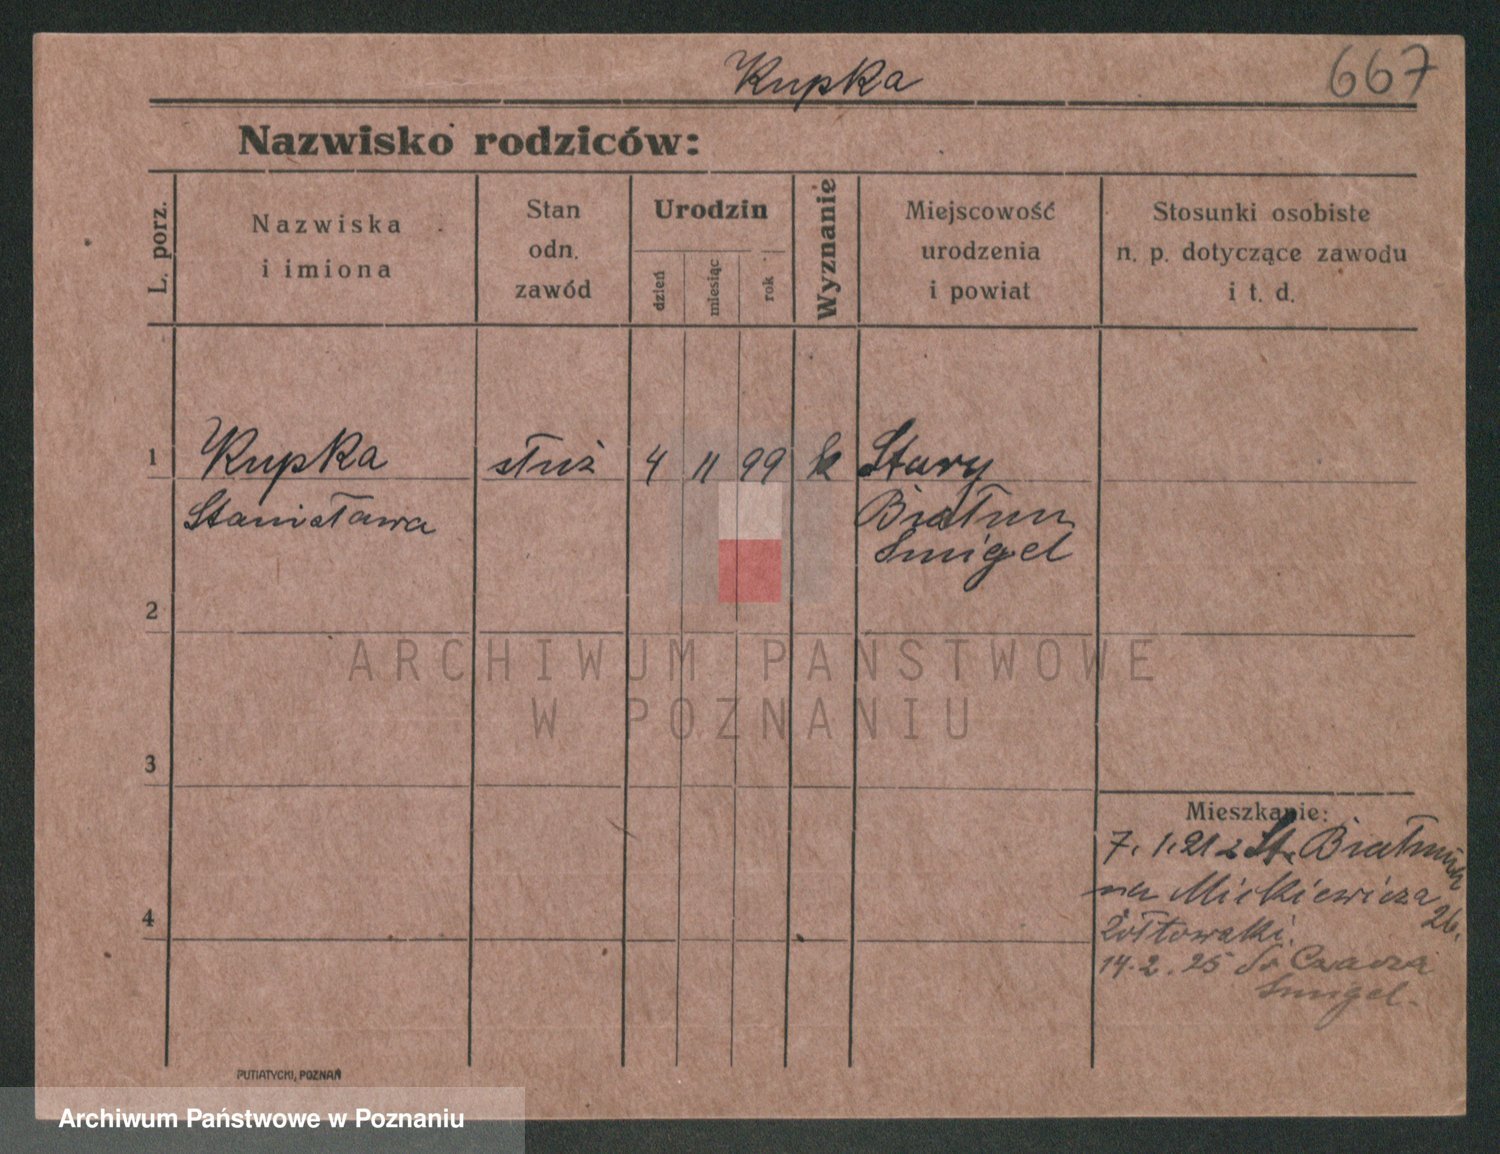 Kupka
667
Nazwisko rodziców:
L. porz.
Nazwiska
i imiona
Stan
odn.
zawód
Urodzin
dzień
miesiąc
rok
Wyznanie
Miejscowość
urodzenia
i powiat
Stosunki osobiste
n. p. dotyczące zawodu
i t. d.
1 Kupka służ 4 11 99 k Stary
Stanisława Białcz
Smigel
2
3
4
Mieszkanie:
7. 1. 21 z St.
na Mickiewicza
26.
Żółtowski.
14. 2. 25 do Czacza
Smigel.
PUTIATYCKI, POZNAŃ
ARCHIWUM PAŃSTWOWE
W POZNANIU
Archiwum Państwowe w Poznaniu